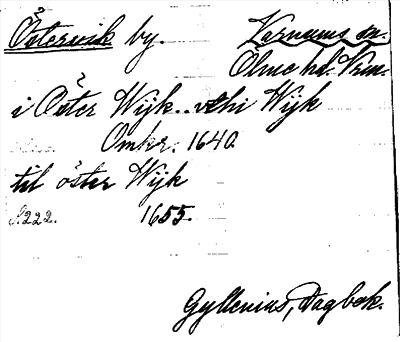 Östervik by. Varnums sn.
Ölme hd. Vrm.
i Öster Wijk.. vthi Wijk
Omkr. 1640.
til öster Wijk
S.222. 1655.
Gyllenius, Dagbok.